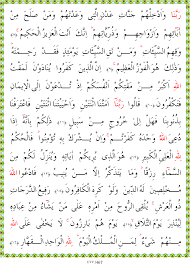 رَبَّنَا وَأَدْخِلْهُمْ جَنَّاتِ عَدْنٍ الَّتِي وَعَدْتَهُمْ وَمَنْ صَلَحَ مِنْ
آبَائِهِمْ وَأَزْوَاجِهِمْ وَذُرِّيَّاتِهِمْ إِنَّكَ أَنْتَ الْعَزِيزُ الْحَكِيمُ
وَقِهِمُ السَّيِّئَاتِ وَمَنْ تَقِ السَّيِّئَاتِ يَوْمَئِذٍ فَقَدْ رَحِمْتَهُ
وَذَلِكَ هُوَ الْفَوْزُ الْعَظِيمُ إِنَّ الَّذِينَ كَفَرُوا يُنَادَوْنَ لَمَقْتُ
اللَّهِ أَكْبَرُ مِنْ مَقْتِكُمْ أَنْفُسَكُمْ إِذْ تُدْعَوْنَ إِلَى الْإِيمَانِ
فَتَكْفُرُونَ قَالُوا رَبَّنَا أَمَتَّنَا اثْنَتَيْنِ وَأَحْيَيْتَنَا اثْنَتَيْنِ فَاعْتَرَفْنَا
بِذُنُوبِنَا فَهَلْ إِلَى خُرُوجٍ مِنْ سَبِيلٍ ذَلِكُمْ بِأَنَّهُ إِذَا
دُعِيَ اللَّهُ وَحْدَهُ كَفَرْتُمْ وَإِنْ يُشْرَكْ بِهِ تُؤْمِنُوا فَالْحُكْمُ
لِلَّهِ الْعَلِيِّ الْكَبِيرِ هُوَ الَّذِي يُرِيكُمْ آيَاتِهِ وَيُنَزِّلُ لَكُمْ مِنَ
السَّمَاءِ رِزْقًا وَمَا يَتَذَكَّرُ إِلَّا مَنْ يُنِيبُ فَادْعُوا اللَّهَ
مُخْلِصِينَ لَهُ الدِّينَ وَلَوْ كَرِهَ الْكَافِرُونَ رَفِيعُ الدَّرَجَاتِ
ذُو الْعَرْشِ يُلْقِي الرُّوحَ مِنْ أَمْرِهِ عَلَى مَنْ يَشَاءُ مِنْ عِبَادِهِ
لِيُنْذِرَ يَوْمَ التَّلَاقِ يَوْمَ هُمْ بَارِزُونَ لَا يَخْفَى عَلَى اللَّهِ
مِنْهُمْ شَيْءٌ لِمَنِ الْمُلْكُ الْيَوْمَ لِلَّهِ الْوَاحِدِ الْقَهَّارِ